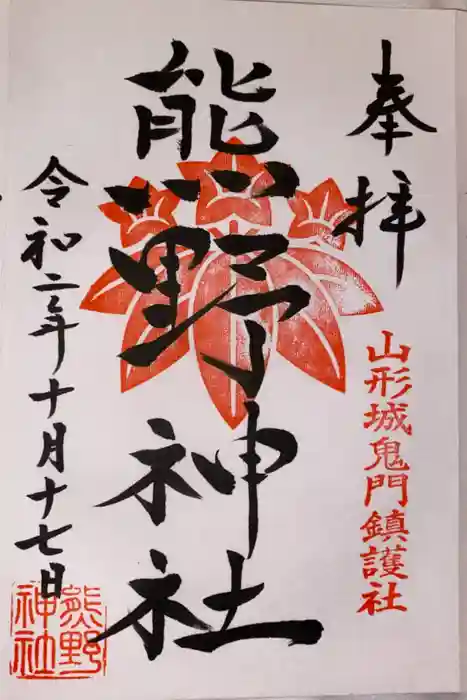 奉拝
山形城鬼門鎮護社
熊野神社
令和二年十月十七日
熊野
神社